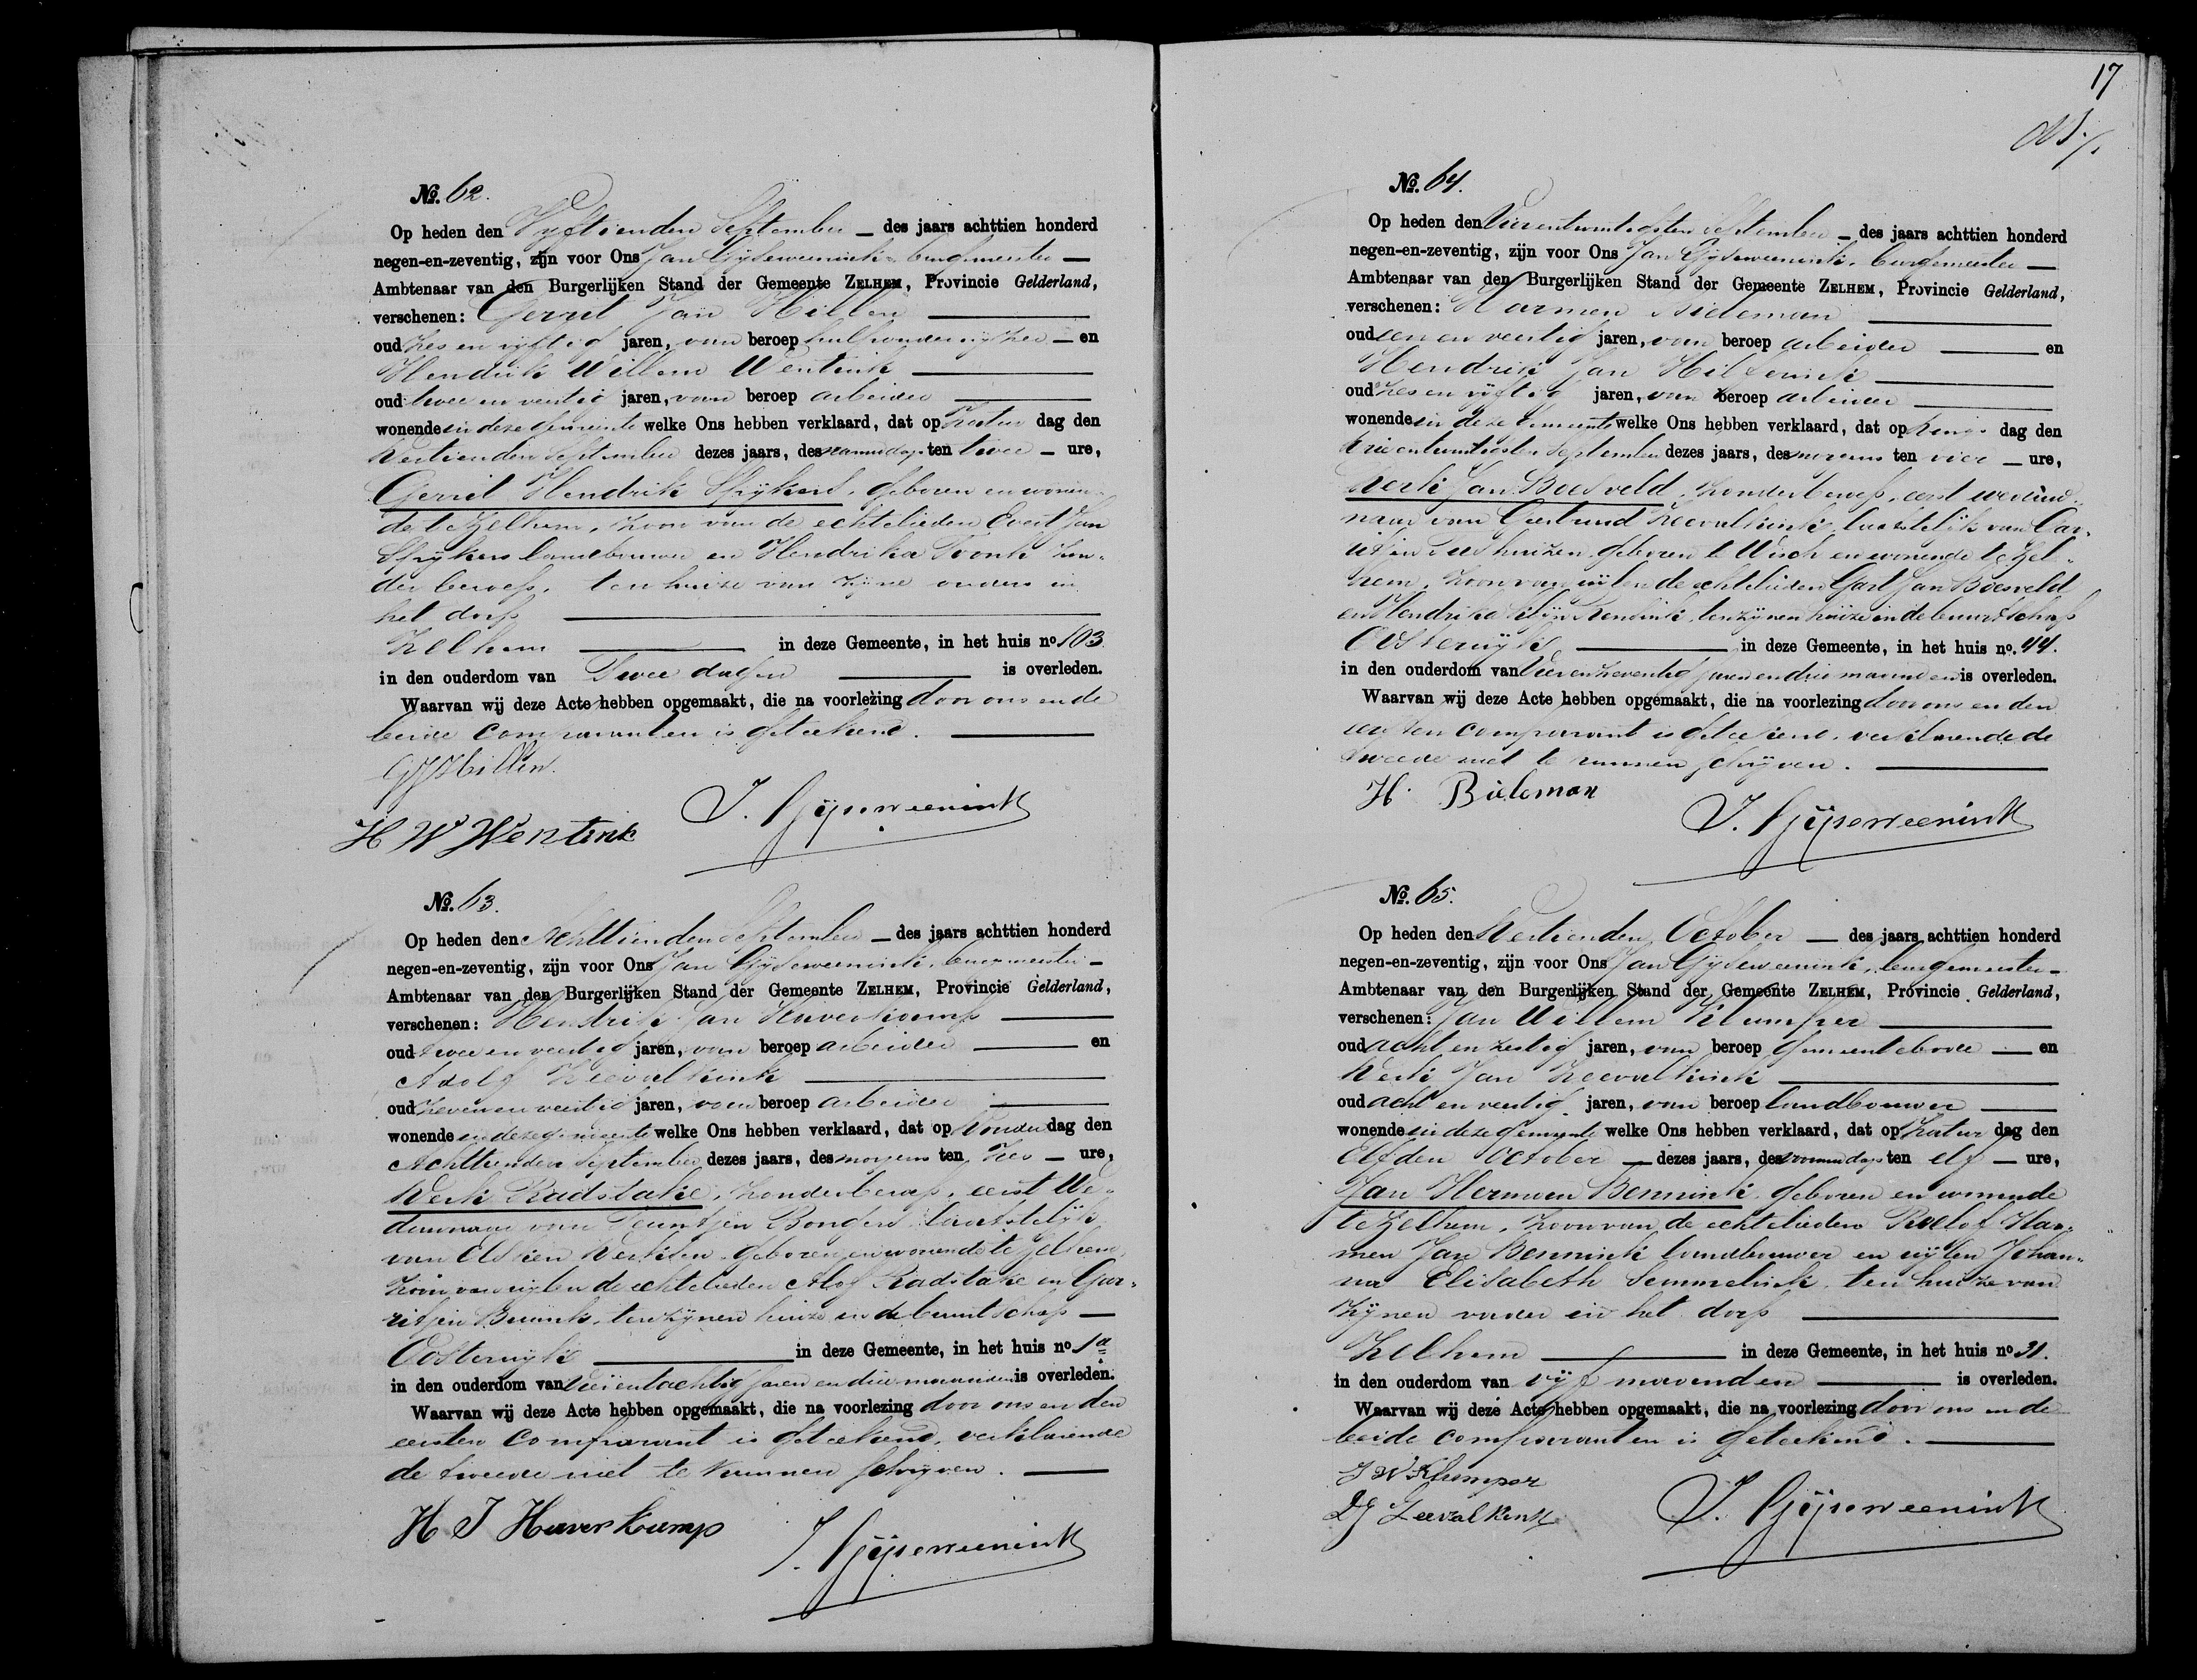 No. 62.
Op heden den Vijftienden September des jaars achttien honderd
negen-en-zeventig, zijn voor Ons Jan Gijseweenink, burgemeester
Ambtenaar van den Burgerlijken Stand der Gemeente ZELHEM, Provincie Gelderland,
verschenen: Gerrit Jan Hillen
oud zes en vijftig jaren, van beroep hulponderwijzer en
Hendrik Willem Wentink
oud twee en veertig jaren, van beroep arbeider
wonende in deze Gemeente welke Ons hebben verklaard, dat op Zaturdag den
Dertienden September dezes jaars, des namiddags ten twee ure,
Gerrit Hendrik Spijkers, geboren en wonen-
de te Zelhem, zoon van de echtelieden Evert Jan
Spijkers landbouwer en Hendrika Tronk zon-
der beroep, ten huize van zijne ouders in
het dorp
Zelhem in deze Gemeente, in het huis no 103.
in den ouderdom van Twee dagen is overleden.
Waarvan wij deze Acte hebben opgemaakt, die na voorlezing door ons en de
beide comparanten is geteekend.
GJ Hillen.
H W Wentink
J. Gijseweenink
No. 63.
Op heden den Achttienden September des jaars achttien honderd
negen-en-zeventig, zijn voor Ons Jan Gijseweenink, burgemeester
Ambtenaar van den Burgerlijken Stand der Gemeente ZELHEM, Provincie Gelderland,
verschenen: Hendrik Jan Haverkamp
oud twee en veertig jaren, van beroep arbeider en
Adolf Zeevalkink
oud zeven en veertig jaren, van beroep arbeider
wonende in deze gemeente welke Ons hebben verklaard, dat op Donderdag den
Achttienden September dezes jaars, des morgens ten Zes ure,
Derk Radstake, zonder beroep, eerst We-
duwnaar van Teuntjen Bongers laatstelijk
van Elsken Derksen, geboren en wonende te Zelhem
Zoon van wijlen de echtelieden Alof Radstake en Gar-
ritjen Buunk, ten zijnen huize in de buurtschap
Oosterwijk in deze Gemeente, in het huis no 1a
in den ouderdom van Vierentachtig Jaren en drie maanden is overleden.
Waarvan wij deze Acte hebben opgemaakt, die na voorlezing door ons en den
eersten comparant is geteekend, verklarende
de tweede niet te kunnen schrijven.
H J Haverkamp
J. Gijseweenink
17
No. 64.
Op heden den Vierentwintigsten September des jaars achttien honderd
negen-en-zeventig, zijn voor Ons Jan Gijseweenink, burgemeester
Ambtenaar van den Burgerlijken Stand der Gemeente ZELHEM, Provincie Gelderland,
verschenen: Harmen Bieleman
oud een en veertig jaren, van beroep arbeider en
Hendrik Jan Hilferink
oud zes en vijftig jaren, van beroep arbeider
wonende in deze Gemeente welke Ons hebben verklaard, dat op Dingsdag den
Drieentwintigsten September dezes jaars, des morgens ten vier ure,
Derk Jan Boesveld, zonder beroep, eerst weduw-
naar van Geertruid Zeevalkink, laatstelijk van Gar-
ritjen Teeshuizen, geboren te Wisch en wonende te Zel-
hem, zoon van wijlen de echtelieden Gart Jan Boesveld
en Hendrika Klijn Rensink, ten zijnen huize in de buurtschap
Oosterwijk in deze Gemeente, in het huis no. 44.
in den ouderdom van Vierenzeventig Jaren en drie maanden is overleden.
Waarvan wij deze Acte hebben opgemaakt, die na voorlezing door ons en den
eersten comparant is geteekend, verklarende de
tweede niet te kunnen schrijven.
H. Bieleman
J. Gijseweenink
No. 65.
Op heden den Dertienden October des jaars achttien honderd
negen-en-zeventig, zijn voor Ons Jan Gijseweenink, burgemeester
Ambtenaar van den Burgerlijken Stand der Gemeente ZELHEM, Provincie Gelderland,
verschenen: Jan Willem Klumper
oud acht en zestig jaren, van beroep Gemeentebode en
Derk Jan Zeevalkink
oud acht en veertig jaren, van beroep landbouwer
wonende in deze Gemeente welke Ons hebben verklaard, dat op Zaturdag den
Elfden October dezes jaars, des voormiddags ten elf ure,
Jan Hermen Bennink, geboren en wonende
te Zelhem, zoon van de echtelieden Roelof Har-
men Jan Bennink landbouwer en wijlen Johan-
na Elisabeth Semmelink, ten huize van
zijnen vader in het dorp
Zelhem in deze Gemeente, in het huis no 31.
in den ouderdom van vijf maanden is overleden.
Waarvan wij deze Acte hebben opgemaakt, die na voorlezing door ons en de
beide comparanten is geteekend.
J W Klumper
DJ Zeevalkink
J. Gijseweenink